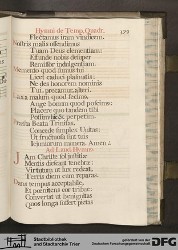 Hymni de Temp. Quadr. 129
Flectamus iram vindicem,
Nostris malis offendimus
Tuam Deus clementiam:
Effunde nobis desuper
Remissor indulgentiam.
Memento quod sumus tui
Licet caduci plasmatis:
Ne des honorem nominis
Tui, precamur, alteri.
Laxa malum quod fecimus,
Auge bonum quod poscimus:
Placere quo tandem tibi
Possimus hic, perpetim.
Praesta Beata Trinitas,
Concede simplex Unitas:
Ut fructuosa sint tuis
Jejuniorum munera. Amen.
Ad Laud. Hymnus.
Jam Christe sol justitiae
Mentis diescant tenebrae:
Virtutum ut lux redeat,
Terris diem cum reparas.
Dans tempus acceptabile,
Et poenitens cor tribue:
Convertat ut benignitas
Quos longa suffert pietas
Stadtbibliothek
und Stadtarchiv Trier
gefördert von der
Deutschen Forschungsgemeinschaft
DFG